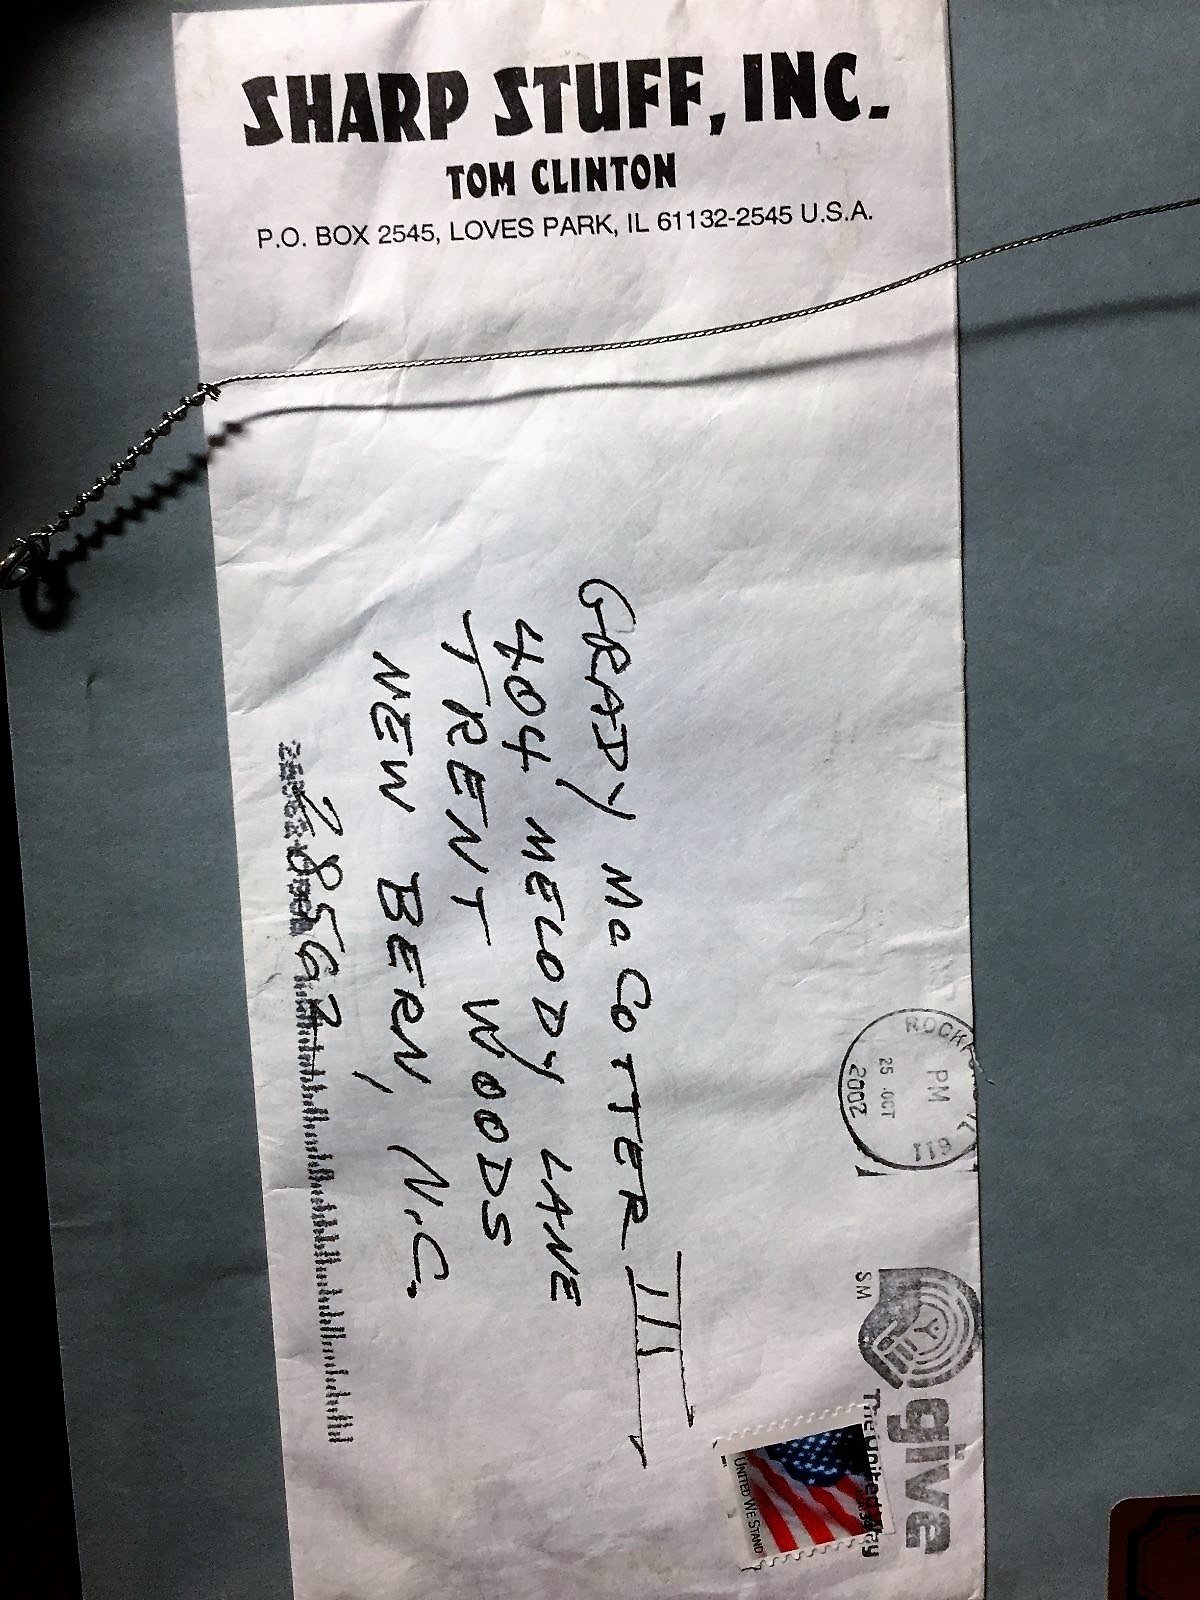 SHARP STUFF, INC.
TOM CLINTON
P.O. BOX 2545, LOVES PARK, IL 61132-2545 U.S.A.
GRADY McCOTTER III
404 MELODY LANE
TRENT WOODS
NEW BERN, N.C.
28562
PM
25 OCT
2002
611
SM
give
The United Way
UNITED WE STAND